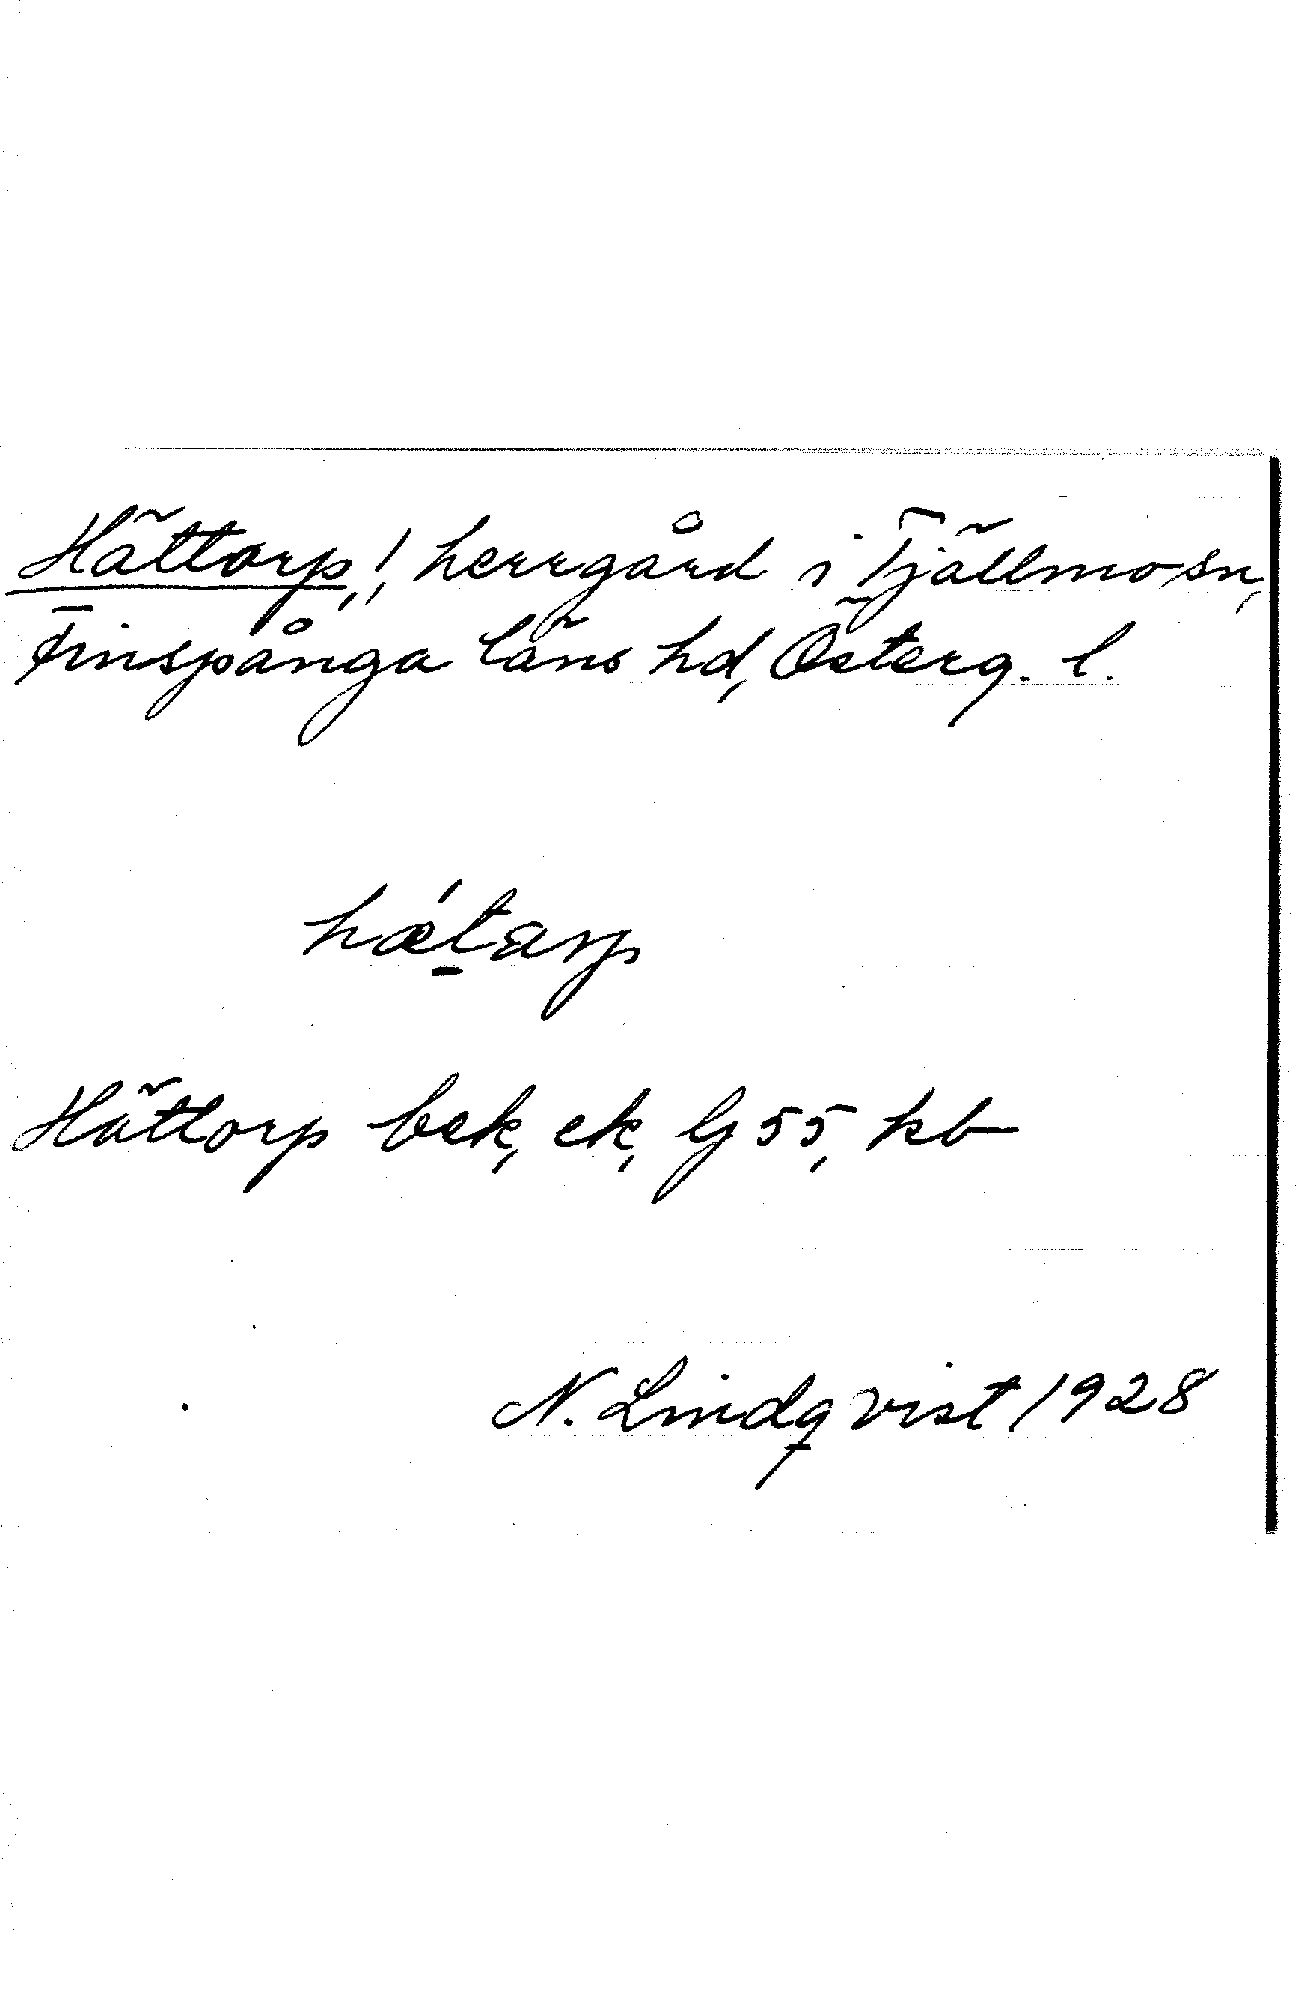 Hättorp,! herrgård i Tjällmo sn,
Finspånga läns hd, Österg. l.
hǽtarp
Hättorp bek, ek, Gj 55, kb
N. Lindqvist 1928